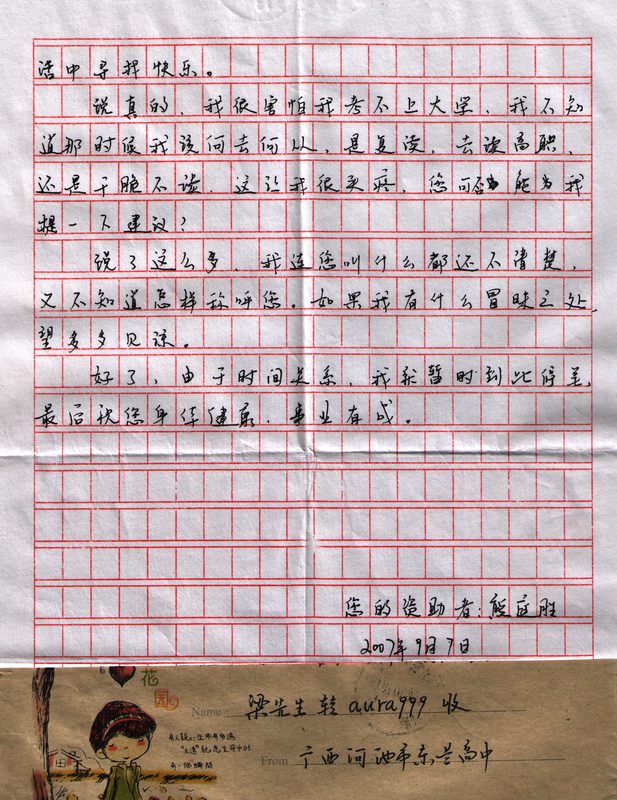 活中寻找快乐。
说真的，我很害怕我考不上大学，我不知
道那时候我该何去何从，是复读，去读高职，
还是干脆不读，这让我很头疼，您可否能为我
提一下建议？
说了这么多，我连您叫什么都还不清楚，
又不知道怎样称呼您。如果我有什么冒昧之处，
望多多见谅。
好了，由于时间关系，我就暂时到此停笔，
最后祝您身体健康，事业有成。
您的资助者：熊庭胜
2007年9月9日
花
园
Name 梁先生转aura999 收
有人说：生命有多远
"永远"就是生命中的
每一個瞬間
From 广西河池市东兰高中